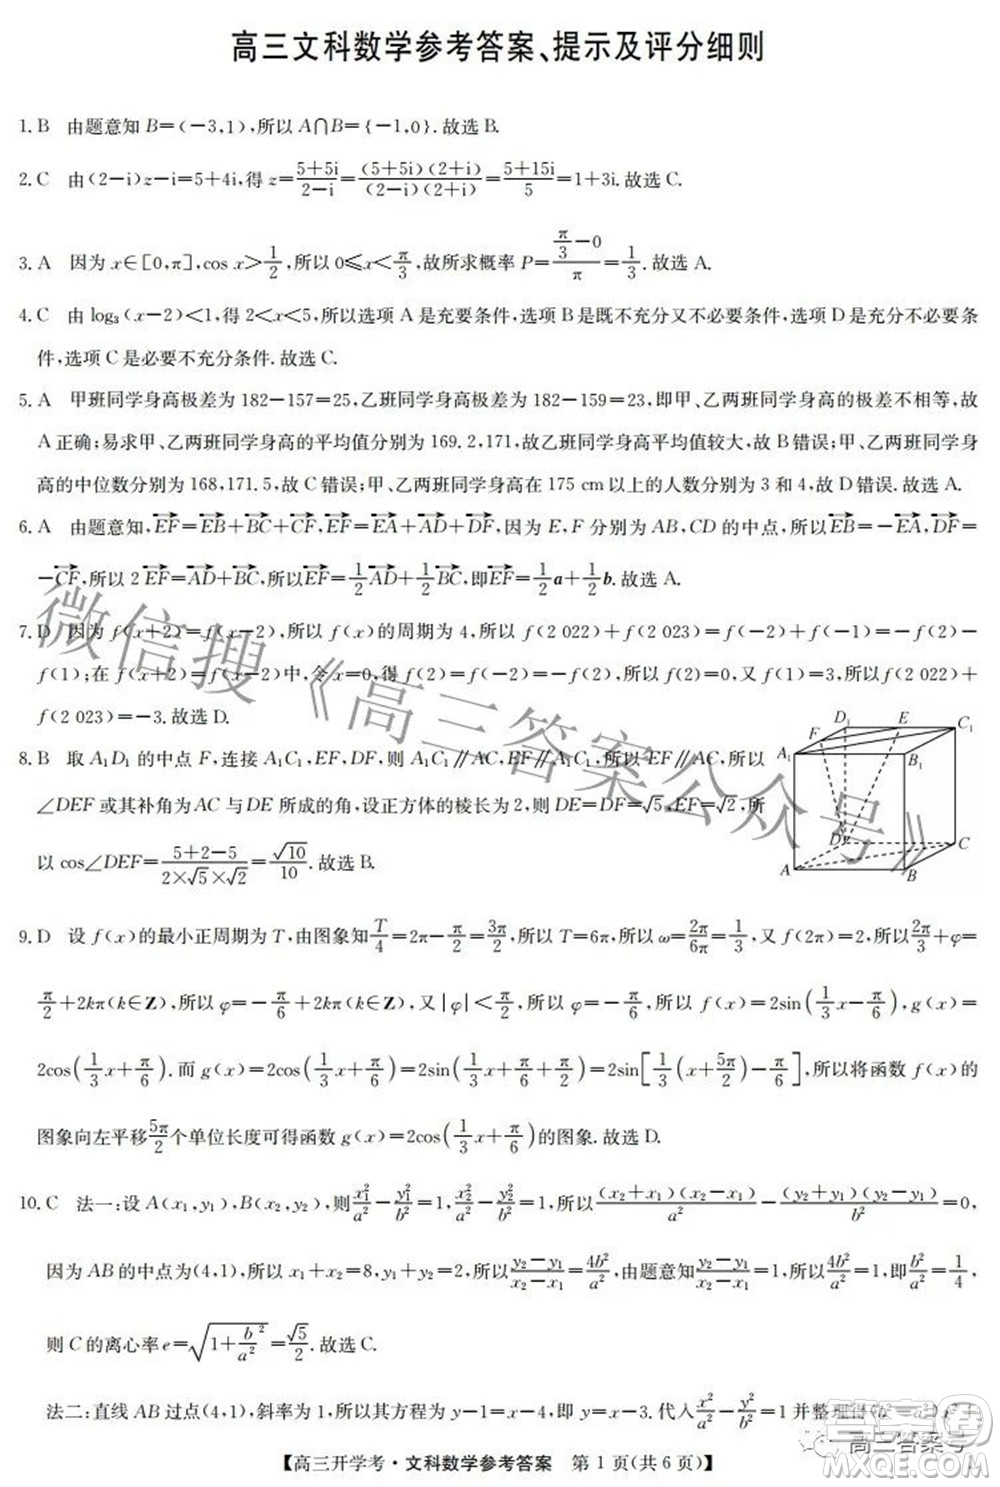 高三文科数学参考答案、提示及评分细则
1. B 由题意知 B=(-3,1),所以 A∩B={-1,0}.故选 B.
2. C 由(2-i)z-i=5+4i,得 z=(5+5i)/(2-i)=((5+5i)(2+i))/((2-i)(2+i))=(5+15i)/5=1+3i.故选 C.
3. A 因为 x∈[0,π],cos x>1/2,所以 0≤x<π/3,故所求概率 P=(π/3-0)/π=1/3.故选 A.
4. C 由 log₃(x-2)<1,得 2<x<5,所以选项 A 是充要条件,选项 B 是既不充分又不必要条件,选项 D 是充分不必要条件,
选项 C 是必要不充分条件.故选 C.
5. A 甲班同学身高极差为 182-157=25,乙班同学身高极差为 182-159=23,即甲、乙两班同学身高的极差不相等,故
A 正确;易求甲、乙两班同学身高的平均值分别为 169.2,171,故乙班同学身高平均值较大,故 B 错误;甲、乙两班同学身高
的中位数分别为 168,171.5,故 C 错误;甲、乙两班同学身高在 175 cm 以上的人数分别为 3 和 4,故 D 错误.故选 A.
6. A 由题意知,→EF=→EB+→BC+→CF,→EF=→EA+→AD+→DF,因为 E,F 分别为 AB,CD 的中点,所以→EB=-→EA,→DF=
-→CF,所以 2→EF=→AD+→BC,所以→EF=1/2→AD+1/2→BC,即→EF=1/2a+1/2b.故选 A.
7. D 因为 f(x+2)=f(x-2),所以 f(x)的周期为 4,所以 f(2 022)+f(2 023)=f(-2)+f(-1)=-f(2)-
f(1);在 f(x+2)=f(x-2)中,令 x=0,得 f(2)=f(-2)=-f(2),所以 f(2)=0,又 f(1)=3,所以 f(2 022)+
f(2 023)=-3.故选 D.
8. B 取 A₁D₁ 的中点 F,连接 A₁C₁,EF,DF,则 A₁C₁∥AC,EF∥A₁C₁,所以 EF∥AC,所以
∠DEF 或其补角为 AC 与 DE 所成的角,设正方体的棱长为 2,则 DE=DF=√5,EF=√2,所
以 cos∠DEF=(5+2-5)/(2×√5×√2)=√10/10.故选 B.
D₁ E C₁
F
A₁ B₁
D C
A B
9. D 设 f(x)的最小正周期为 T,由图象知 T/4=2π-π/2=3π/2,所以 T=6π,所以 ω=2π/6π=1/3,又 f(2π)=2,所以 2π/3+φ=
π/2+2kπ(k∈Z),所以 φ=-π/6+2kπ(k∈Z),又|φ|<π/2,所以 φ=-π/6,所以 f(x)=2sin(1/3x-π/6),g(x)=
2cos(1/3x+π/6).而 g(x)=2cos(1/3x+π/6)=2sin(1/3x+π/6+π/2)=2sin[1/3(x+5π/2)-π/6],所以将函数 f(x)的
图象向左平移 5π/2 个单位长度可得函数 g(x)=2cos(1/3x+π/6)的图象.故选 D.
10. C 法一:设 A(x₁,y₁),B(x₂,y₂),则 x₁²/a²-y₁²/b²=1,x₂²/a²-y₂²/b²=1,所以((x₂+x₁)(x₂-x₁))/a²-((y₂+y₁)(y₂-y₁))/b²=0,
因为 AB 的中点为(4,1),所以 x₁+x₂=8,y₁+y₂=2,所以(y₂-y₁)/(x₂-x₁)=4b²/a²,由题意知(y₂-y₁)/(x₂-x₁)=1,所以 4b²/a²=1,即 b²/a²=1/4,
则 C 的离心率 e=√(1+b²/a²)=√5/2.故选 C.
法二:直线 AB 过点(4,1),斜率为 1,所以其方程为 y-1=x-4,即 y=x-3.代入 x²/a²-y²/b²=1 并整理得
【高三开学考·文科数学参考答案 第 1 页(共 6 页)】
微信搜《高三答案公众号》
高三答案号
答案圈
MXQE.COM